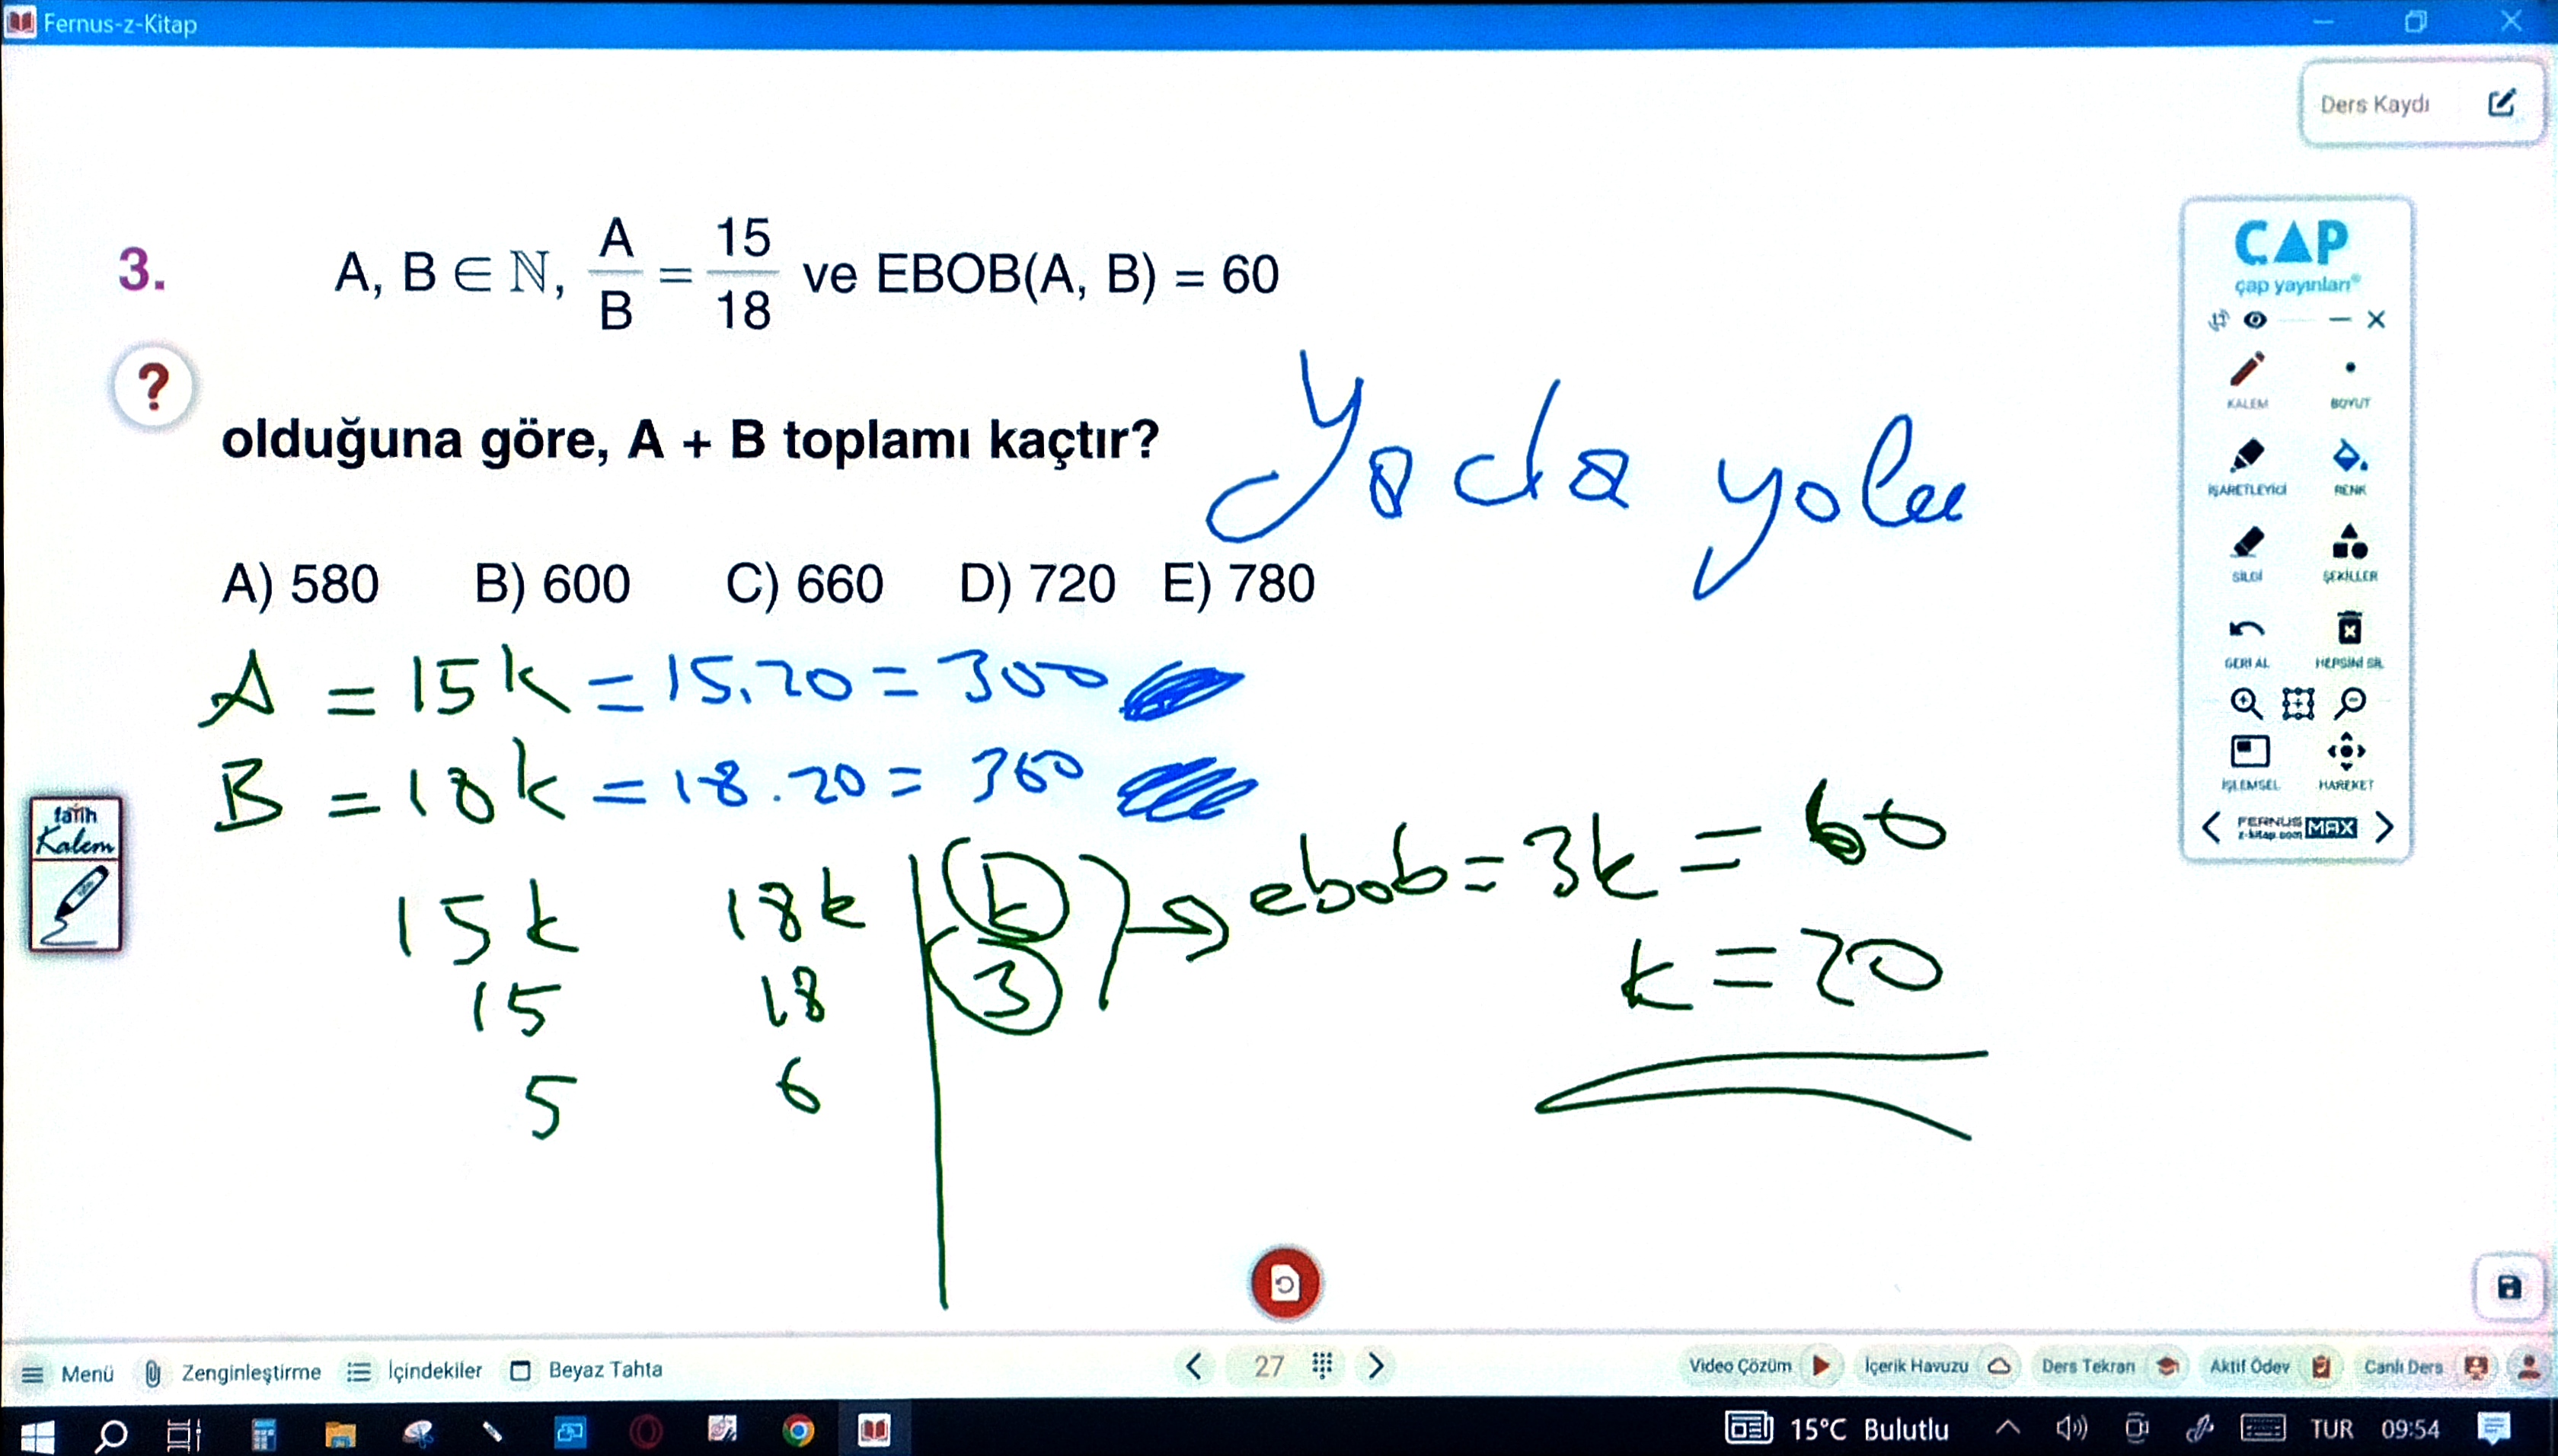 Fernus-z-Kitap
Ders Kaydı
3. A, B ∈ ℕ, A/B = 15/18 ve EBOB(A, B) = 60
?
olduğuna göre, A + B toplamı kaçtır?
Yada yolu
A) 580 B) 600 C) 660 D) 720 E) 780
A = 15k = 15.20 = 300
B = 18k = 18.20 = 360
15k 18k | k → ebob = 3k = 60
15 18 | 3 k = 20
5 6
ÇAP
çap yayınları®
KALEM BOYUT
İŞARETLEYİCİ RENK
SİLGİ ŞEKİLLER
GERİ AL HEPSİNİ SİL
İŞLEMSEL HAREKET
FERNUS MAX
z-kitap.com
fatih
Kalem
Menü Zenginleştirme İçindekiler Beyaz Tahta 27 Video Çözüm İçerik Havuzu Ders Tekrarı Aktif Ödev Canlı Ders
15°C Bulutlu TUR 09:54